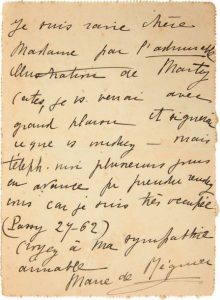 Je suis ravie chère
Madame par l'admirable
illustration de Marty
Certes, je vs. verrai avec
grand plaisir et signerai
ce que vs voudrez – mais
téléph. moi plusieurs jours
en avance pr prendre rendez
vous car je suis très occupée
(Passy 27-62)
Croyez à ma sympathie
aimable
Marie de Régnier